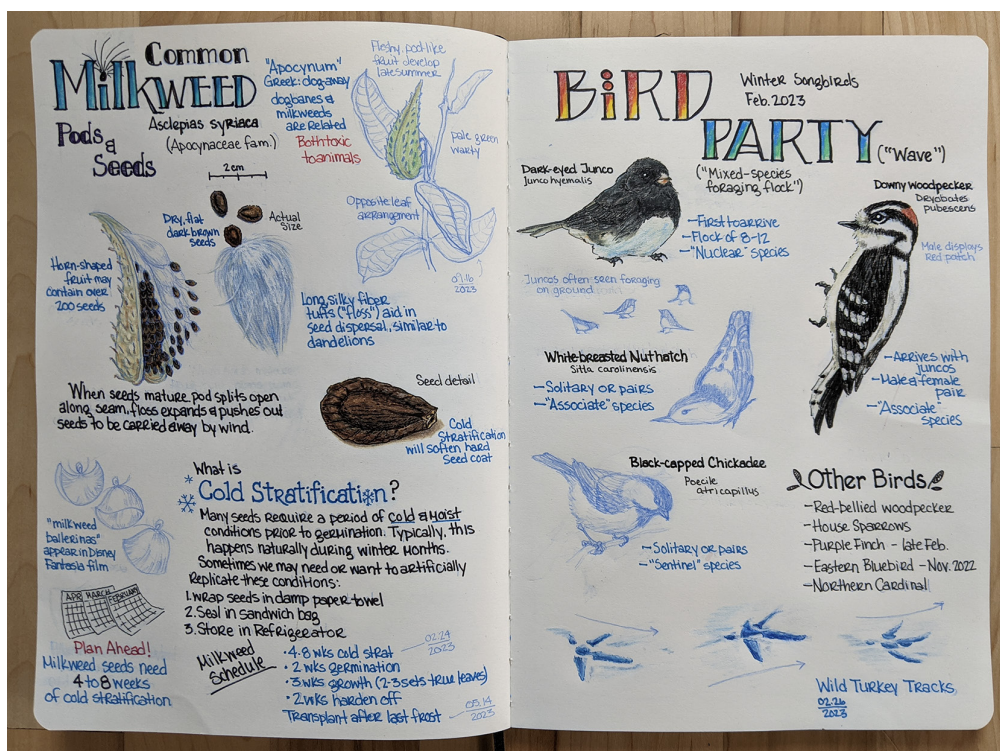 Common
Milkweed
Pods &
Seeds
Asclepias syriaca
(Apocynaceae fam.)
"Apocynum"
Greek: dog-away
dogbanes &
milkweeds
are Related
Both toxic
to animals
Fleshy, pod-like
fruit develop
late summer
pale green
warty
Opposite leaf
arrangement
09.16
2023
2 cm
Dry, flat
dark brown
seeds
Actual
Size
Horn-shaped
fruit may
contain over
200 seeds
Long silky fiber
tufts ("floss") aid in
seed dispersal, similar to
dandelions
When seeds mature, pod splits open
along seam, floss expands & pushes out
seeds to be carried away by wind.
Seed detail
Cold
Stratification
will soften hard
Seed coat
"milkweed
ballerinas"
appear in Disney
Fantasia film
What is
Cold Stratification?
Many seeds require a period of cold & moist
conditions prior to germination. Typically, this
happens naturally during winter months.
Sometimes we may need or want to artificially
Replicate these conditions:
1. wrap seeds in damp paper towel
2. Seal in sandwich bag
3. Store in Refrigerator
APR MARCH FEBRUARY
Plan Ahead!
Milkweed seeds need
4 to 8 weeks
of cold stratification
Milkweed
Schedule
• 4-8 wks cold strat
• 2 wks germination
• 3 wks growth (2-3 sets true leaves)
• 2 wks harden off
Transplant after last frost
02.24
2023
05.14
2023
BiRD
PARTY
Winter Songbirds
Feb. 2023
("Wave")
("Mixed-species
foraging flock")
Dark-eyed Junco
Junco hyemalis
-First to arrive
-Flock of 8-12
-"Nuclear" species
Juncos often seen foraging
on ground
Downy woodpecker
Dryobates
pubescens
Male displays
Red patch
-Arrives with
juncos
-Male & female
pair
-"Associate"
species
White-breasted Nuthatch
Sitta carolinensis
-Solitary or pairs
-"Associate" species
Black-capped Chickadee
Poecile
atricapillus
-Solitary or pairs
-"Sentinel" species
Other Birds
-Red-bellied woodpecker
-House Sparrows
-Purple Finch - late Feb.
-Eastern Bluebird - Nov. 2022
-Northern Cardinal
Wild Turkey Tracks
02.26
2023